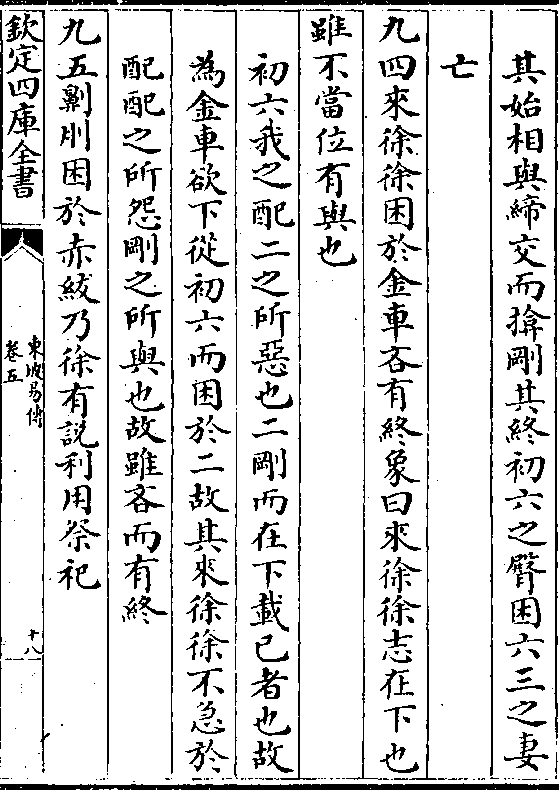 其始相與締交而揜剛其終初六之臀困六三之妻
亡
九四來徐徐困於金車吝有終象曰來徐徐志在下也
雖不當位有與也
初六我之配二之所惡也二剛而在下載已者也故
為金車欲下從初六而困於二故其來徐徐不急於
配配之所怨剛之所與也故雖吝而有終
九五劓刖困於赤紱乃徐有説利用祭祀
欽定四庫全書
東坡易傳
卷五
十八